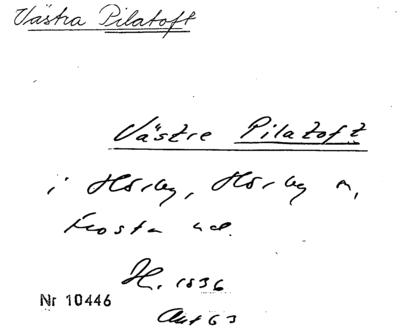 Västra Pilatoft
Västre Pilatoft
i Hörby, Hörby m,
Frosta hd.
H. 1836
Akt 63
Nr 10446